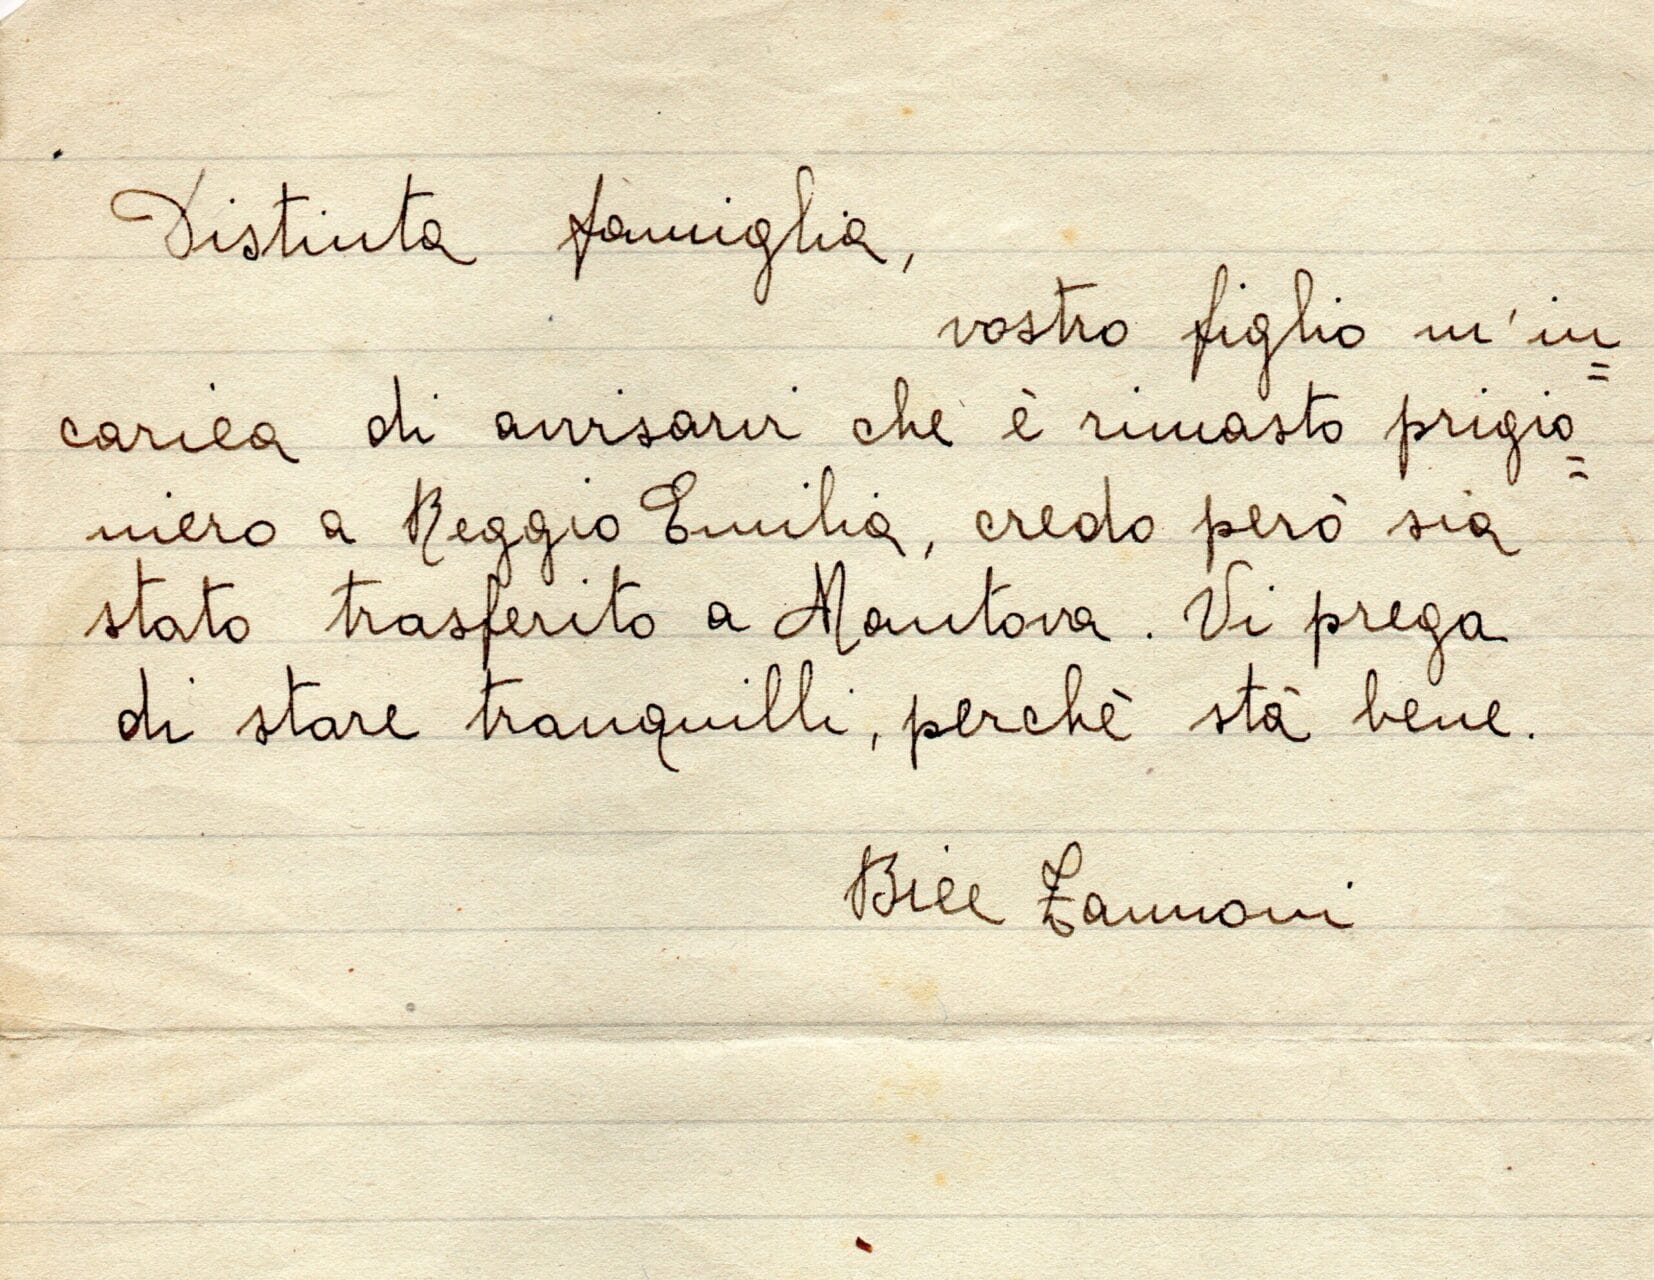 Distinta famiglia,
vostro figlio m'in=
carica di avvisarvi che è rimasto prigio=
niero a Reggio Emilia, credo però sia
stato trasferito a Mantova. Vi prega
di stare tranquilli, perchè stà bene.
Bice Zannoni